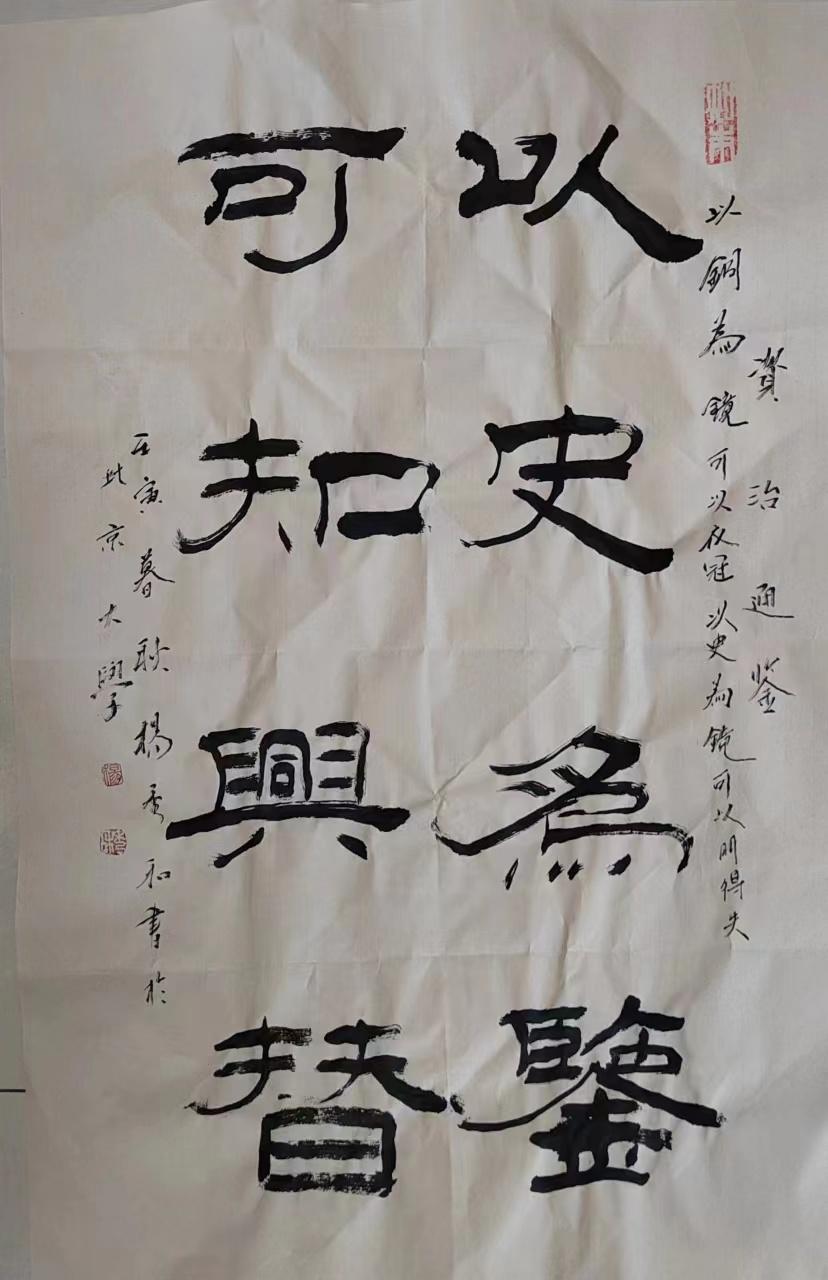 資治通鉴
以銅為鏡可以衣冠以史為鏡可以明得失
以史為鑒
可知興替
壬寅暮秋楊秀和書於
北京大學